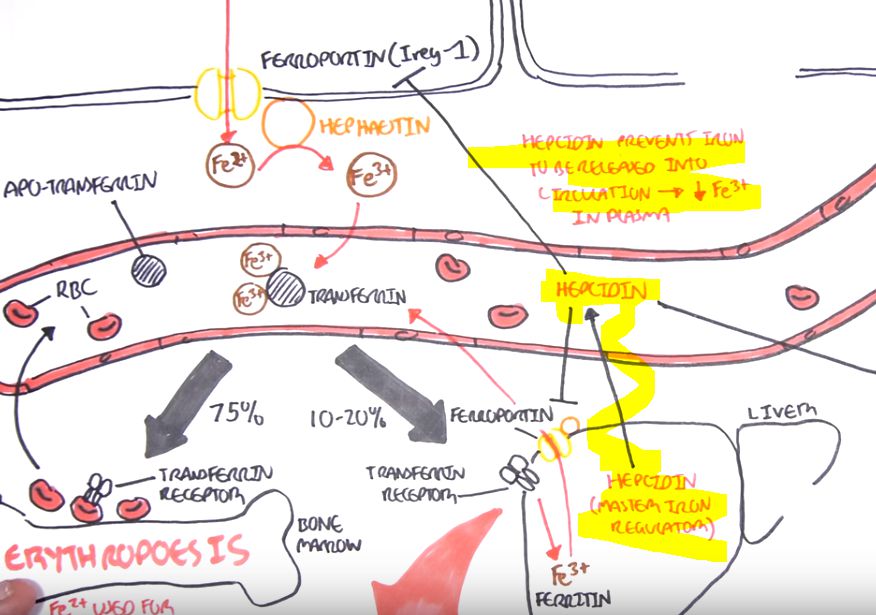 FERROPORTIN (Ireg-1)
HEPHAETIN
Fe2+
Fe3+
HEPCIDIN PREVENTS IRON
TO BE RELEASED INTO
CIRCULATION → ↓ Fe3+
IN PLASMA
APO-TRANSFERRIN
RBC
Fe3+
Fe3+
TRANSFERRIN
HEPCIDIN
75%
10-20%
FERROPORTIN
LIVER
TRANSFERRIN
RECEPTOR
TRANSFERRIN
RECEPTOR
HEPCIDIN
(MASTER IRON
REGULATOR)
BONE
MARROW
ERYTHROPOESIS
Fe3+
FERRITIN
Fe2+ USED FOR